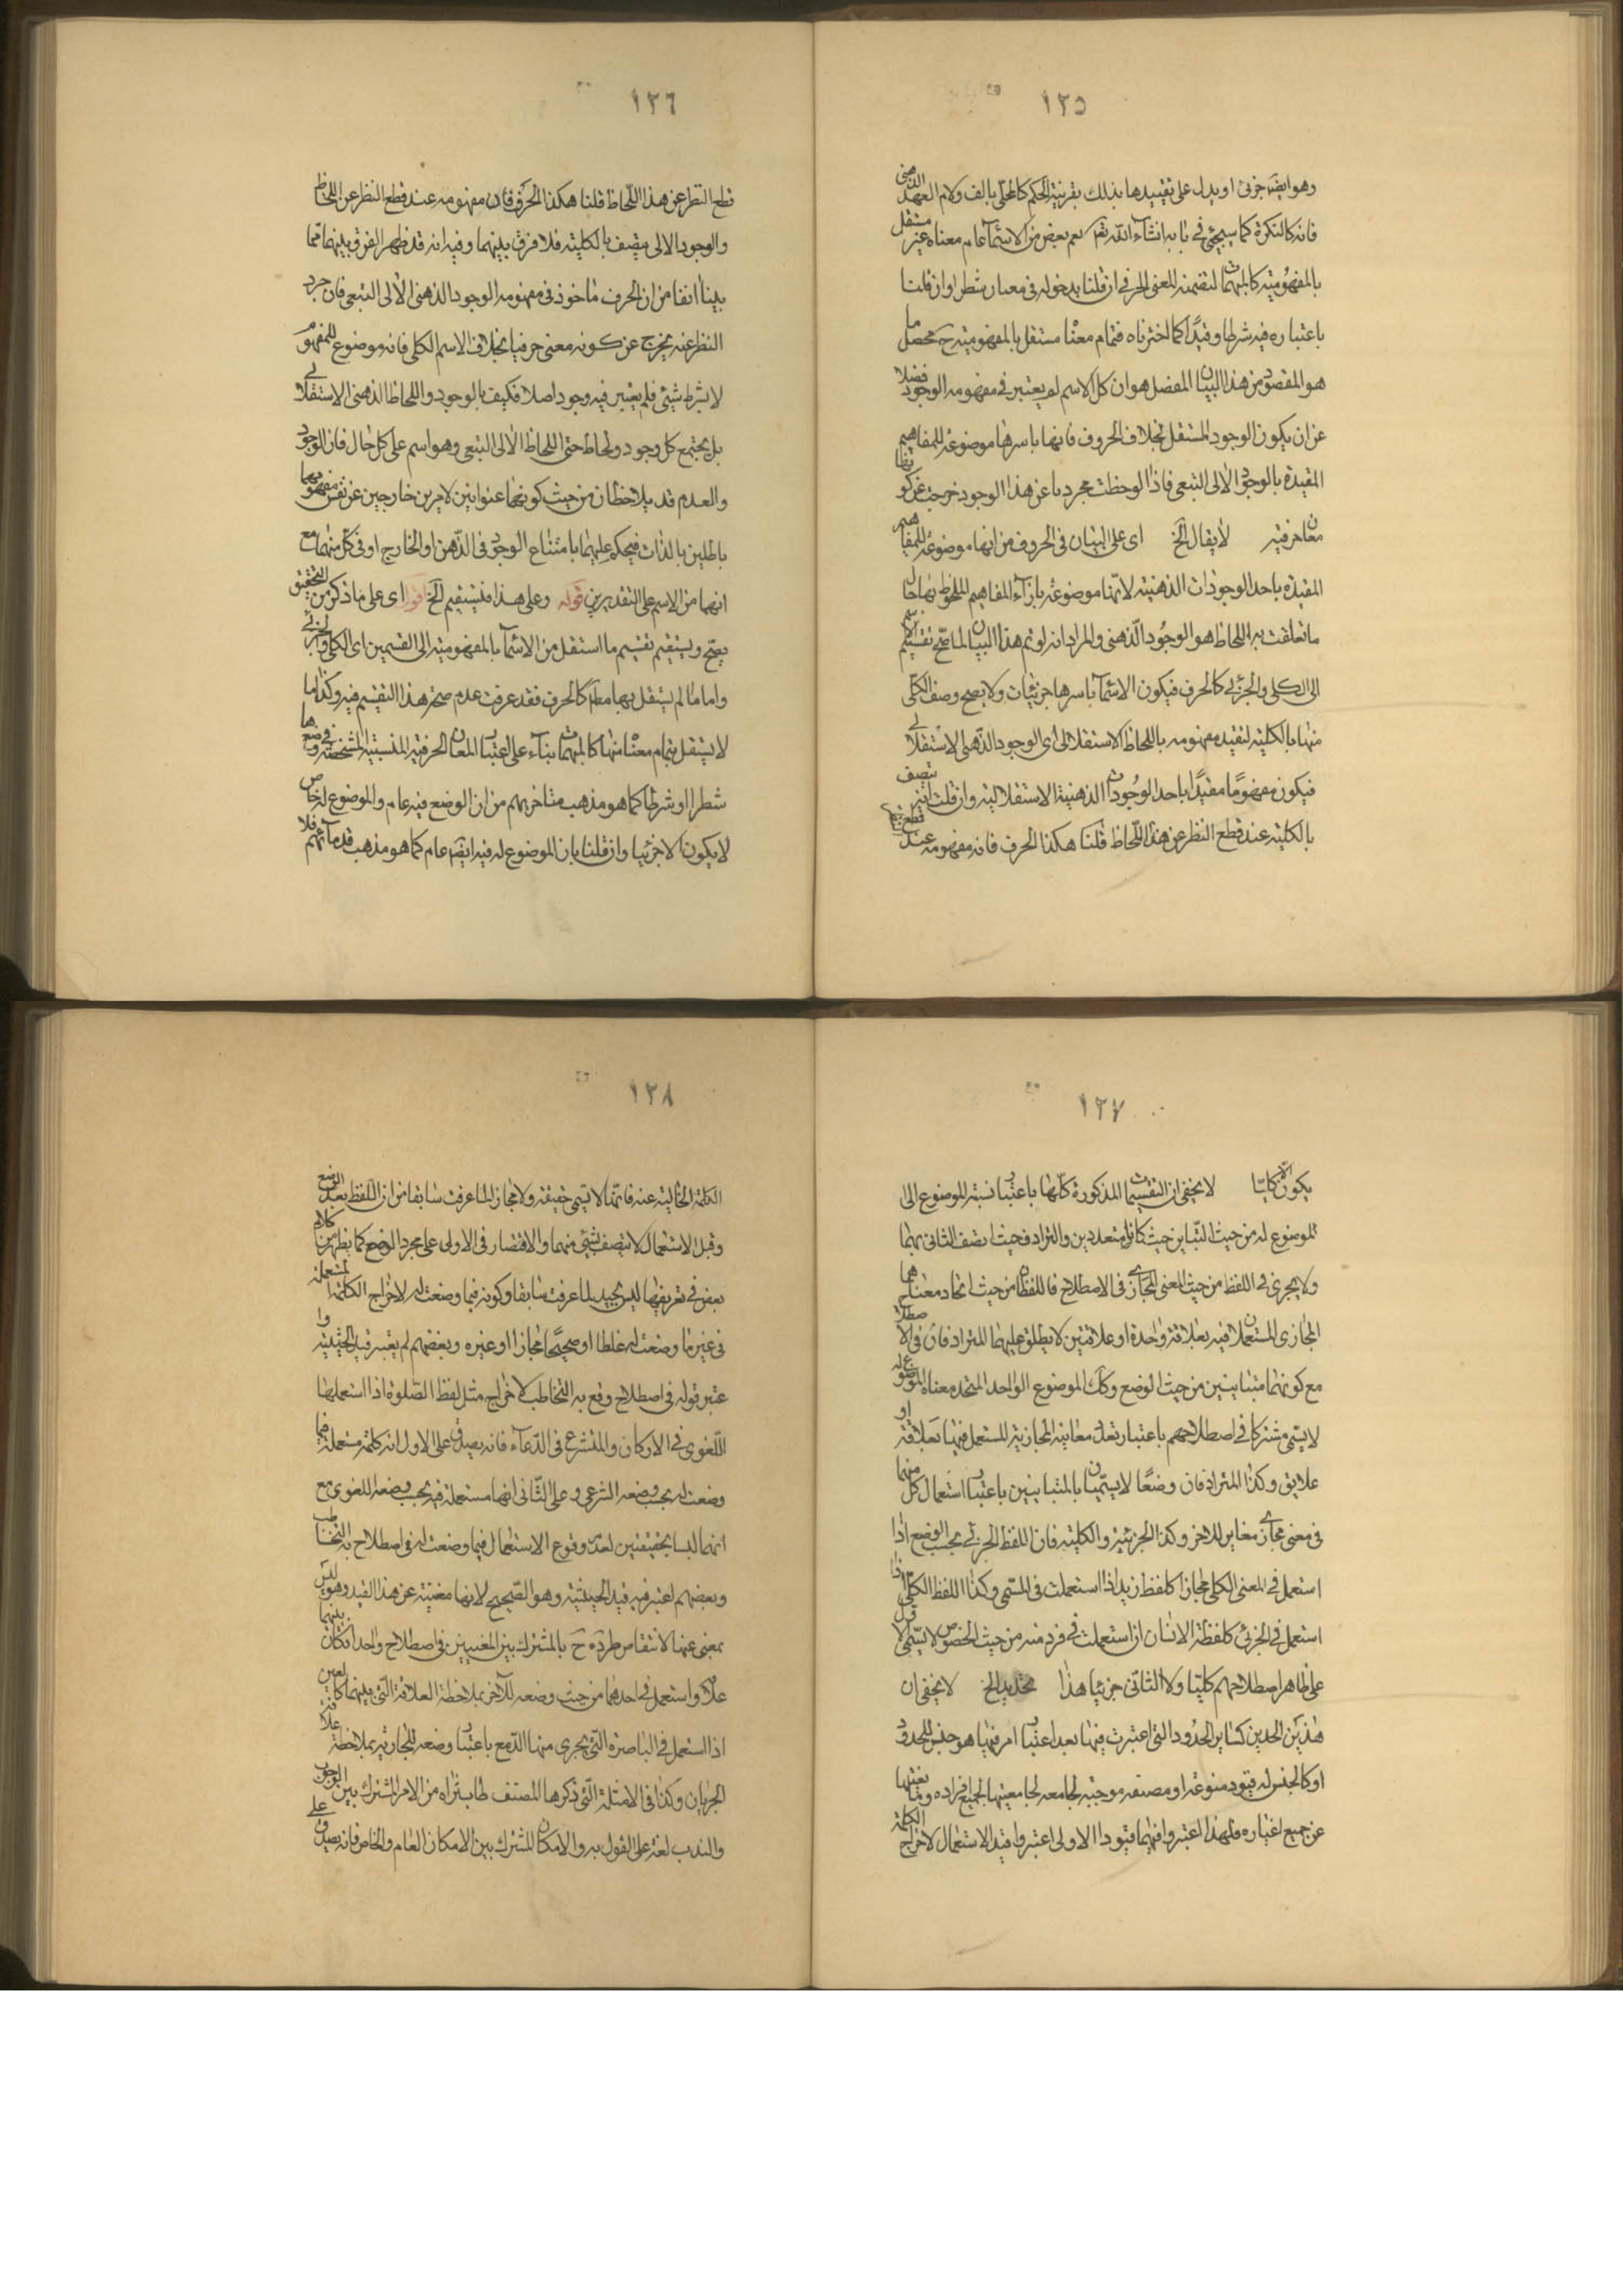 ١٢٥
وهو ايضا جزئى او يدل على تقييدها بذلك بقرينة الحكم كالمحلّى بالف ولام العهد الذهنى
فانه كالنكرة كما سيجيئ فى بابه انشاء اللّه تعم نعم بعض من الاسمآء عام معناه غير مستقل
بالمفهوميّة كالمبهمات لتضمنه المعنى الحرفى ان قلنا بدخوله فى معناه شطرا وان قلنا
باعتباره فيه شرطا وقيدًا كما اخترناه فتمام معناه مستقل بالمفهومية ح محصل ما
هو المقصود من هذا البيان المفصل هو ان كل الاسم لم يعتبر فى مفهومه الوجود فضلا
عن ان يكون الوجود المستقل بخلاف الحروف فانها باسرها موضوعة للمفاهيم
المقيدة بالوجود الالى التبعى فاذا لوحظت مجردا عن هذا الوجود خرجت عن كونها
معان حرفية لا يقال الخ اى على البيان فى الحروف من انها موضوعة للمفاهيم
المقيدة باحد الوجودات الذهنية لانها موضوعة بازآء المفاهيم الملحوظ بها حال
ما تعلقت به اللحاظ هو الوجود الذهنى والمراد انه لو تم هذا البيان لما صح تقسيم الاسم
الى الكلى والجزئى كالحرف فيكون الاسمآء باسرها جزئيات ولا يصح وصف الكلّى
منها بالكلية لتقيد مفهومه باللحاظ الاستقلالى اى الوجود الذهنى الاستقلالى
فيكون مفهومًا مقيدًا باحد الوجودات الذهنية الاستقلالية وان قلت انه يتصف
بالكلية عند قطع النظر عن هذا اللحاظ قلنا هكذا الحرف فانه مفهومه عند
١٢٦
قطع النظر عن هذا اللحاظ قلنا هكذا الحرف فان مفهومه عند قطع النظر عن اللحاظ
والوجود الالى يتصف بالكلية فلا فرق بينهما وفيه انه قد ظهر الفرق بينهما مما
بينا انفا من ان الحرف ماخوذ فى مفهومه الوجود الذهنى الالى التبعى فان جرد
النظر عنه يخرج عن كونه معنى حرفيا بخلاف الاسم الكلى فانه موضوع للمفهوم
لا بشرط شيئ فلم يعتبر فيه وجود اصلا فكيف بالوجود واللحاظ الذهنى الاستقلالى
بل يجتمع كل وجود ولحاظ حتى اللحاظ الالى التبعى وهو اسم على كل حال فان الوجود
والعدم قد يلاحظان من حيث كونهما عنوانين لامرين خارجين عن نفس مفهومهما
باطلين بالذات فيحكم عليهما بامتناع الوجود فى الذهن او الخارج او فى كل منهما مع
انهما من الاسم على التقديرين قوله وعلى هذا فيستقيم الخ اقول اى على ما ذكر من التحقيق
يصح ويستقيم تقسيم ما استقل من الاسمآء بالمفهومية الى القسمين اى الكلى والجزئى
واما ما لم يستقل بها مط كالحرف فقد عرفت عدم صحة هذا التقسيم فيه وكذا ما
لا يستقل بتمام معناه منها كالمبهمات بناء على اعتبار المعان الحرفية النسبية المشخصة فى وضعها
شطرا او شرطا كما هو مذهب متاخريهم من ان الوضع فيه عام والموضوع له خاص
لا يكون الا جزئيا وان قلنا بان الموضوع له فيه ايضا عام كما هو مذهب قدمآئهم فلا
١٢٧
يكون الا كليّا لا يخفى ان التقسيمات المذكورة كلها باعتبار نسبة الموضوع الى
الموضوع له من حيث التباين حيث كانا متعددين والترادف حيث اتصف الثانى بهما
ولا يجرى فى اللفظ من حيث المعنى المجازى فى الاصطلاح فاللفظان من حيث اتحاد معناهما
المجازى المستعملان فيه بعلاقة واحدة او علاقتين لا يطلق عليهما المترادفان فى الاصطلاح
مع كونهما متباينين من حيث الوضع وكك الموضوع الواحد المتحد معناه الموضوع له
لا يسمى مشتركا فى اصطلاحهم باعتبار تعدد معانيه المجازية المستعمل فيها بعلاقة او
علايق وكذا المترادفان وضعًا لا يسميان بالمتباينين باعتبار استعمال كل منهما
فى معنى مجازى مغاير للاخر وكذا الجزئية والكلية فان اللفظ الجزئى بحسب الوضع اذا
استعمل فى المعنى الكلى مجازا كلفظ زيد اذا استعملت فى المسمى وكذا اللفظ الكلى اذا
استعمل فى الجزئى كلفظة الانسان ان استعملت فى فرد منه من حيث الخصوص لا يسمى الاول
على ظاهر اصطلاحهم كليّا ولا الثانى جزئيا هذا تحديد الخ لا يخفى ان
هذين الحدين كساير الحدود التى اعتبرت فيها بعد اعتبار امر فيها هو جنس للمحدود
او كالجنس له قيود منوعة او مصنفه موجبة لجامعه لجامعيتها لجميع افراده ومانعيتها
عن جميع اغياره فلهذا اعتبروا فيهما قيودا الاولى اعتبروا قيد الاستعمال لاخراج الكلمة
١٢٨
الكلمة الخالية عنه فانها لا تسمى حقيقة ولا مجازا لما عرفت سابقا من ان اللفظ بعد الوضع
وقبل الاستعمال لا يتصف بشيئ منهما والاقتصار فى الاولى على مجرد الوضع كما يظهر من كلام
بعض فى تعريفها ليس بجيد لما عرفت سابقا وكونه فيما وضعت له لاخراج الكلمة المستعملة
فى غير ما وضعت له غلطا او صحيحًا مجازا او غيره وبعضهم لم يعتبر قيد الحيثية وا
عتبر قوله فى اصطلاح وقع به التخاطب لاخراج مثل لفظ الصلوة اذا استعملها
اللغوى فى الاركان والمتشرع فى الدعآء فانه يصدق على الاول انه كلمة مستعملة فيما
وضعت له بحسب وضعه الشرعى وعلى الثانى انها مستعملة فيه بحسب وضعه اللغوى مع
انهما ليسا بحقيقتين لعدم وقوع الاستعمال فيما وضعت له فى اصطلاح به التخاطب
وبعضهم اعتبر فيه قيد الحيثية وهو الصحيح لانها مغنية عن هذا القيد وهو ليس
بمغنى عنها لانتقاض طرده ح بالمشترك بين المعنيين فى اصطلاح واحد اذ كان بينهما
علاقة واستعمل فى احدهما من حيث وضعه للاخر بملاحظة العلاقة التى بينهما كالعين
اذا استعمل فى الباصرة التى يجرى منها الدمع باعتبار وضعه للجارية بملاحظة علاقة
الجريان وكذا فى الامثلة التى ذكرها المصنف طاب ثراه من الامر المشترك بين الوجوب
والندب لغة على القول به والامكان المشترك بين الامكان العام والخاص فانه يصدق على